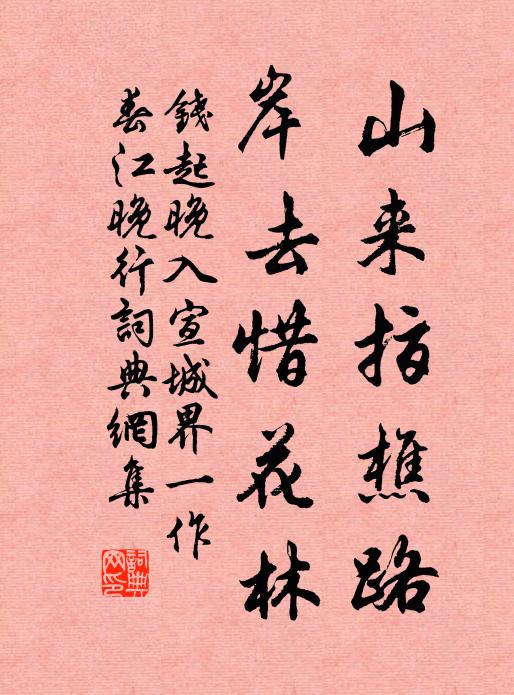 山来指樵路
岸去惜花林
錢起晚入宣城界一作
春江晚行詞典網集
詞典網印